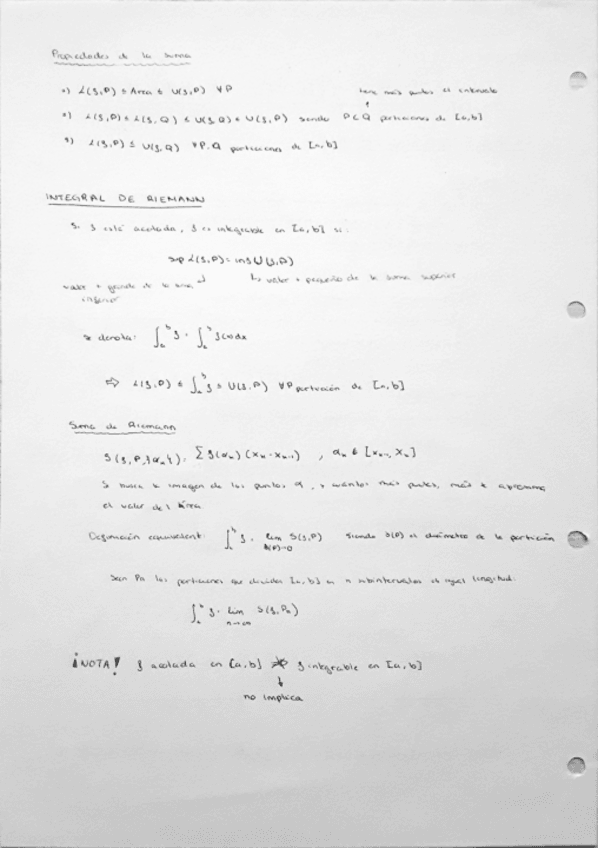 Propiedades de la suma
1) L(f,P) ≤ Area ≤ U(f,P) ∀P
tiene más puntos el intervalo
2) L(f,P) ≤ L(f,Q) ≤ U(f,Q) ≤ U(f,P) siendo P⊂Q particiones de [a,b]
3) L(f,P) ≤ U(f,Q) ∀P,Q particiones de [a,b]
INTEGRAL DE RIEMANN
Si f está acotada, f es integrable en [a,b] si:
sup L(f,P) = inf U(f,P)
valor + grande de la suma inferior
valor + pequeño de la suma superior
se denota: ∫ₐᵇ f = ∫ₐᵇ f(x)dx
⇒ L(f,P) ≤ ∫ₐᵇ f ≤ U(f,P) ∀P partición de [a,b]
Suma de Riemann
S(f,P,{αₙ}) = Σ f(αₙ)(xₙ - xₙ₋₁) , αₙ ∈ [xₙ₋₁, xₙ]
Se busca la imagen de los puntos α, y cuantos más puntos, más se aproxima
el valor del área
Definición equivalent: ∫ₐᵇ f = lim S(f,P) siendo δ(P) el diámetro de la partición
δ(P)→0
Sean Pn las particiones que dividen [a,b] en n subintervalos de igual longitud:
∫ₐᵇ f = lim S(f,Pn)
n→∞
¡NOTA! f acotada en [a,b] ⇏ f integrable en [a,b]
no implica